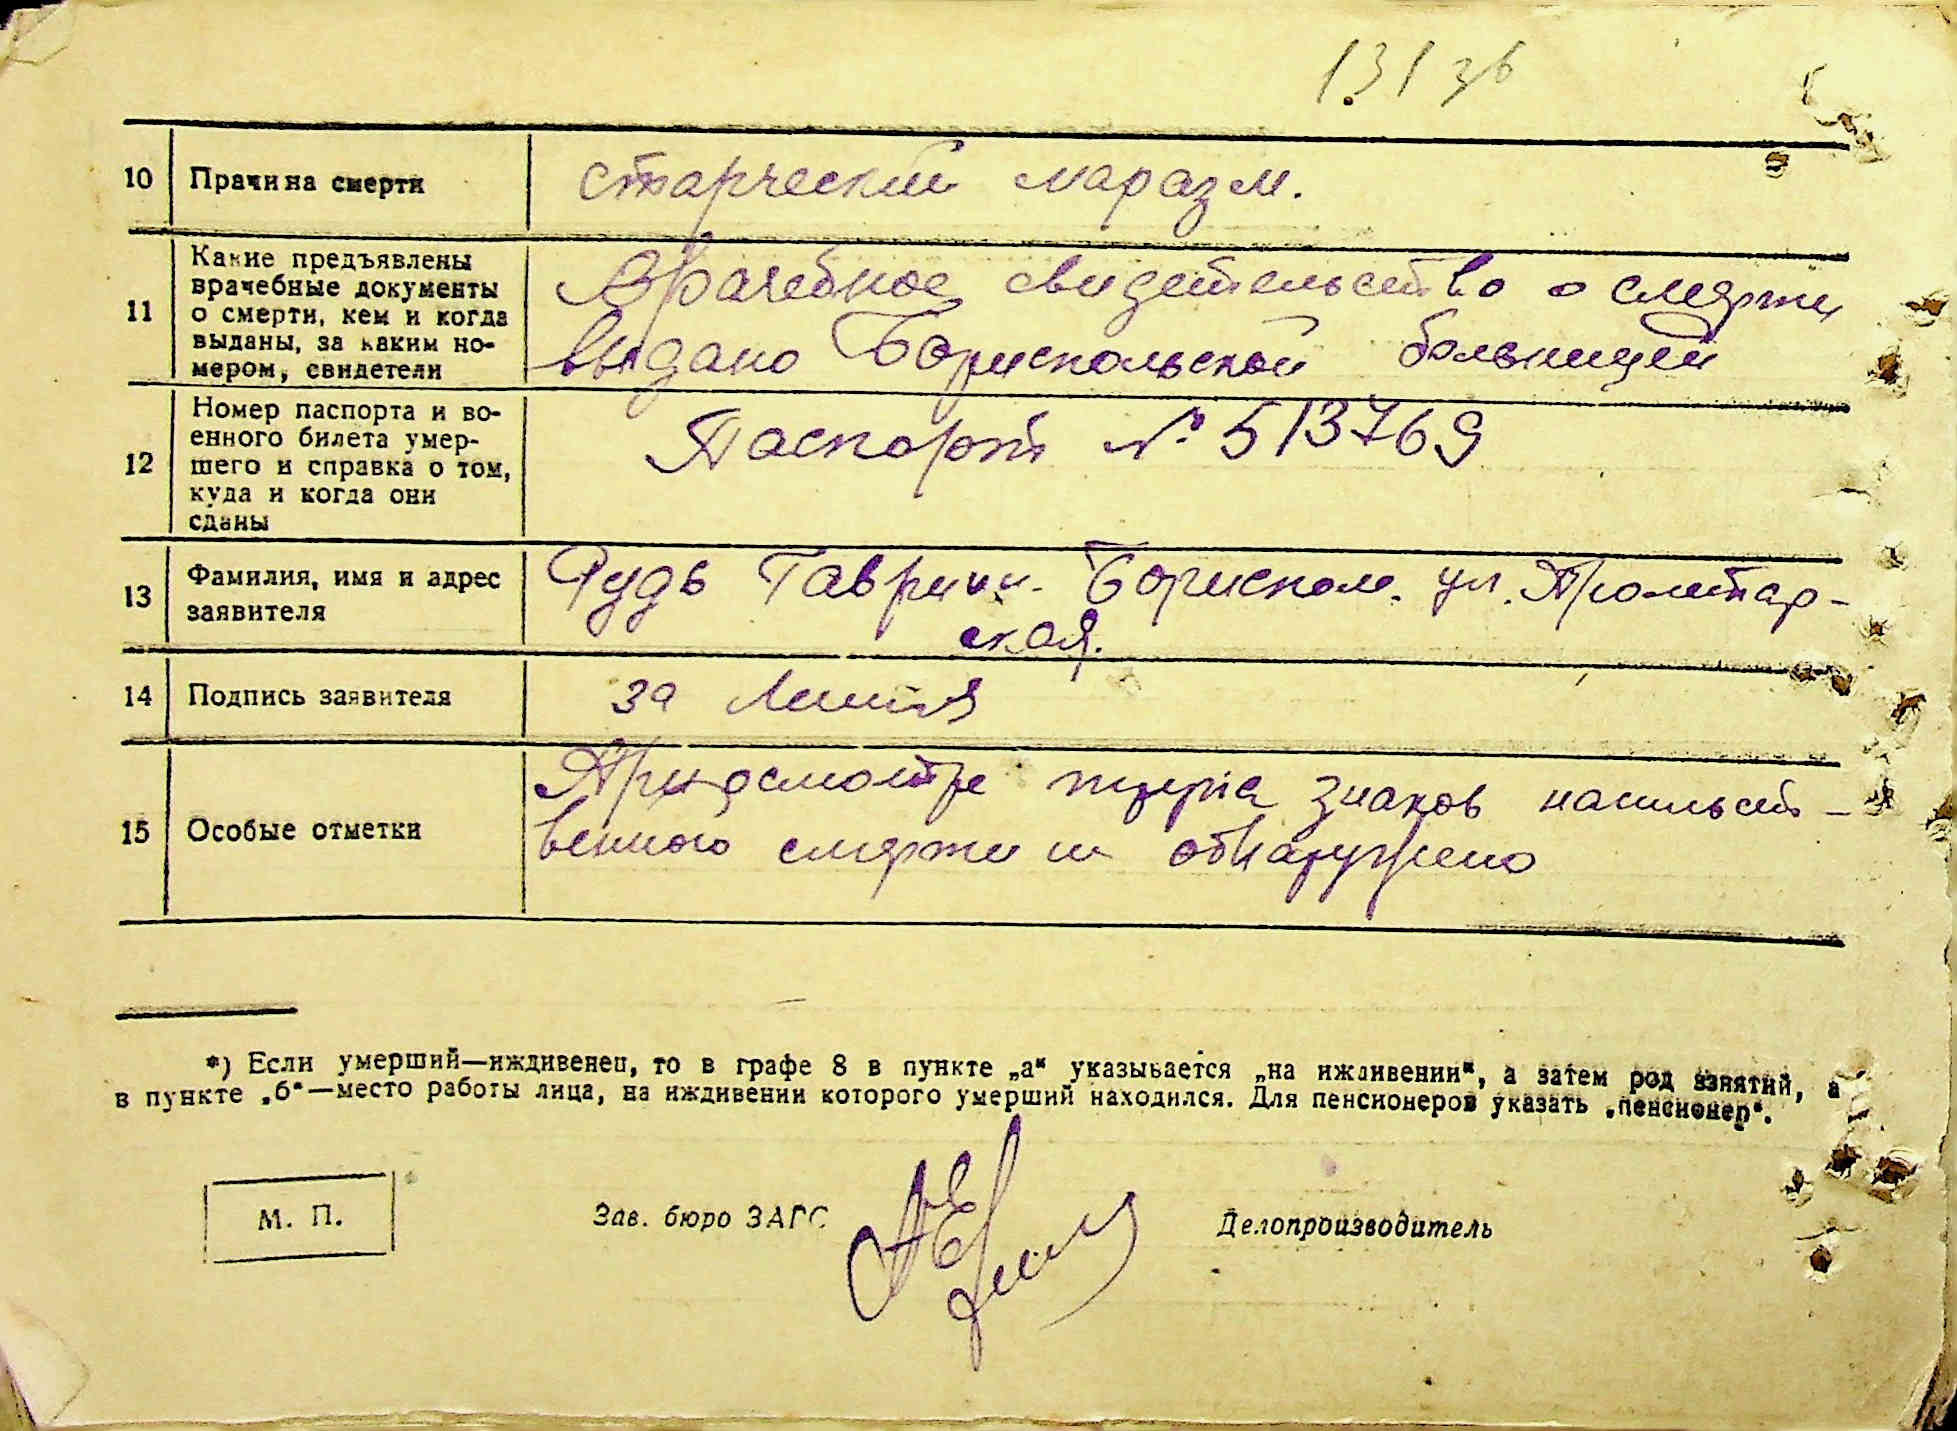 131 зв
10 Причина смерти старческий маразм.
11 Какие предъявлены
врачебные документы
о смерти, кем и когда
выданы, за каким но-
мером, свидетели
Врачебное свидетельство о смерти
выдано Бориспольской больницей
12 Номер паспорта и во-
енного билета умер-
шего и справка о том,
куда и когда они
сданы
Паспорт № 513769
13 Фамилия, имя и адрес
заявителя
Рудь Борисполь. ул. Пролетар-
ская.
14 Подпись заявителя за
15 Особые отметки
При осмотре трупа знаков насильст-
венного смерти не обнаружено
*) Если умерший—иждивенец, то в графе 8 в пункте „а“ указывается „на иждивении“, а затем род занятий, а
в пункте „б“—место работы лица, на иждивении которого умерший находился. Для пенсионеров указать „пенсионер“.
М. П. Зав. бюро ЗАГС Делопроизводитель